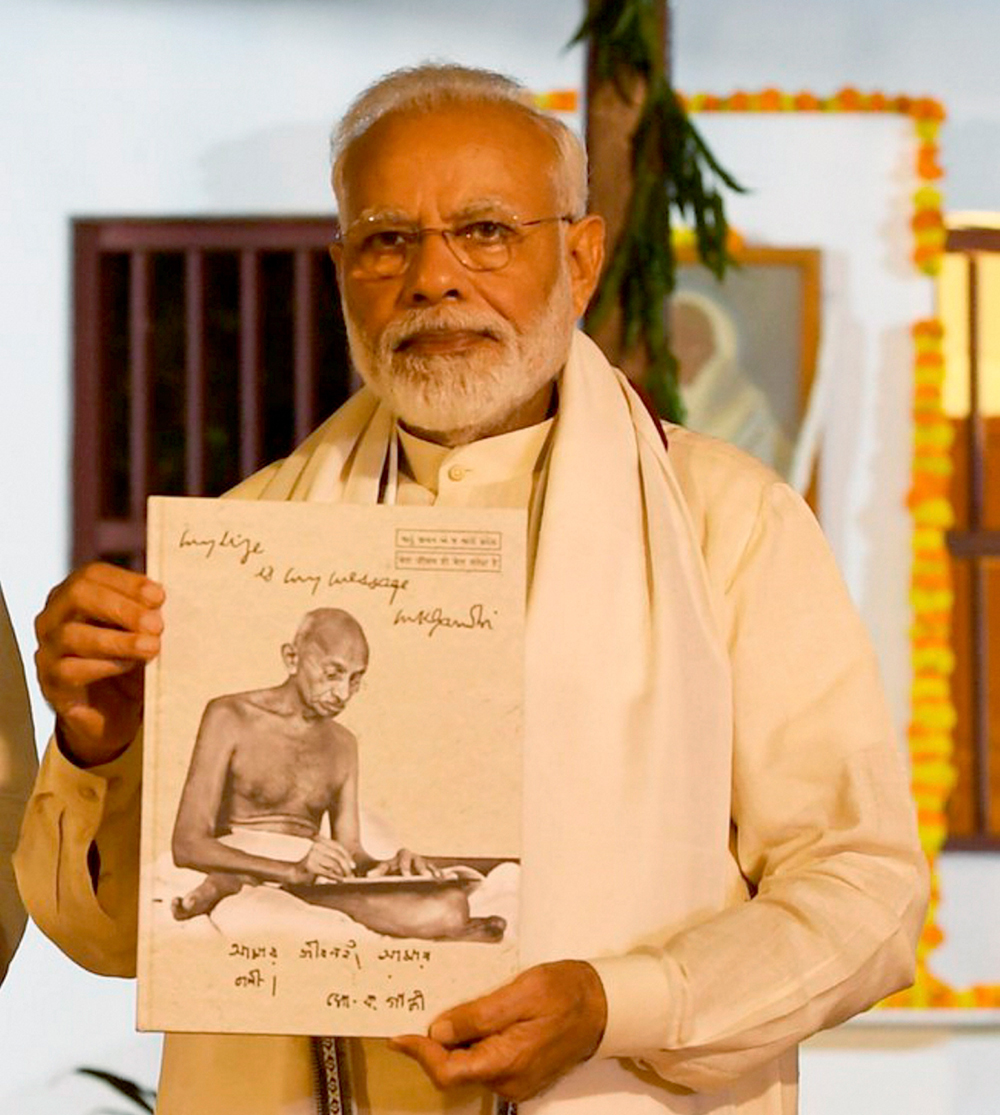 my life
is my message
मेरा जीवन ही मेरा संदेश है
MKGandhi
আমার জীবনই আমার
বাণী।
মো. ক. গান্ধী